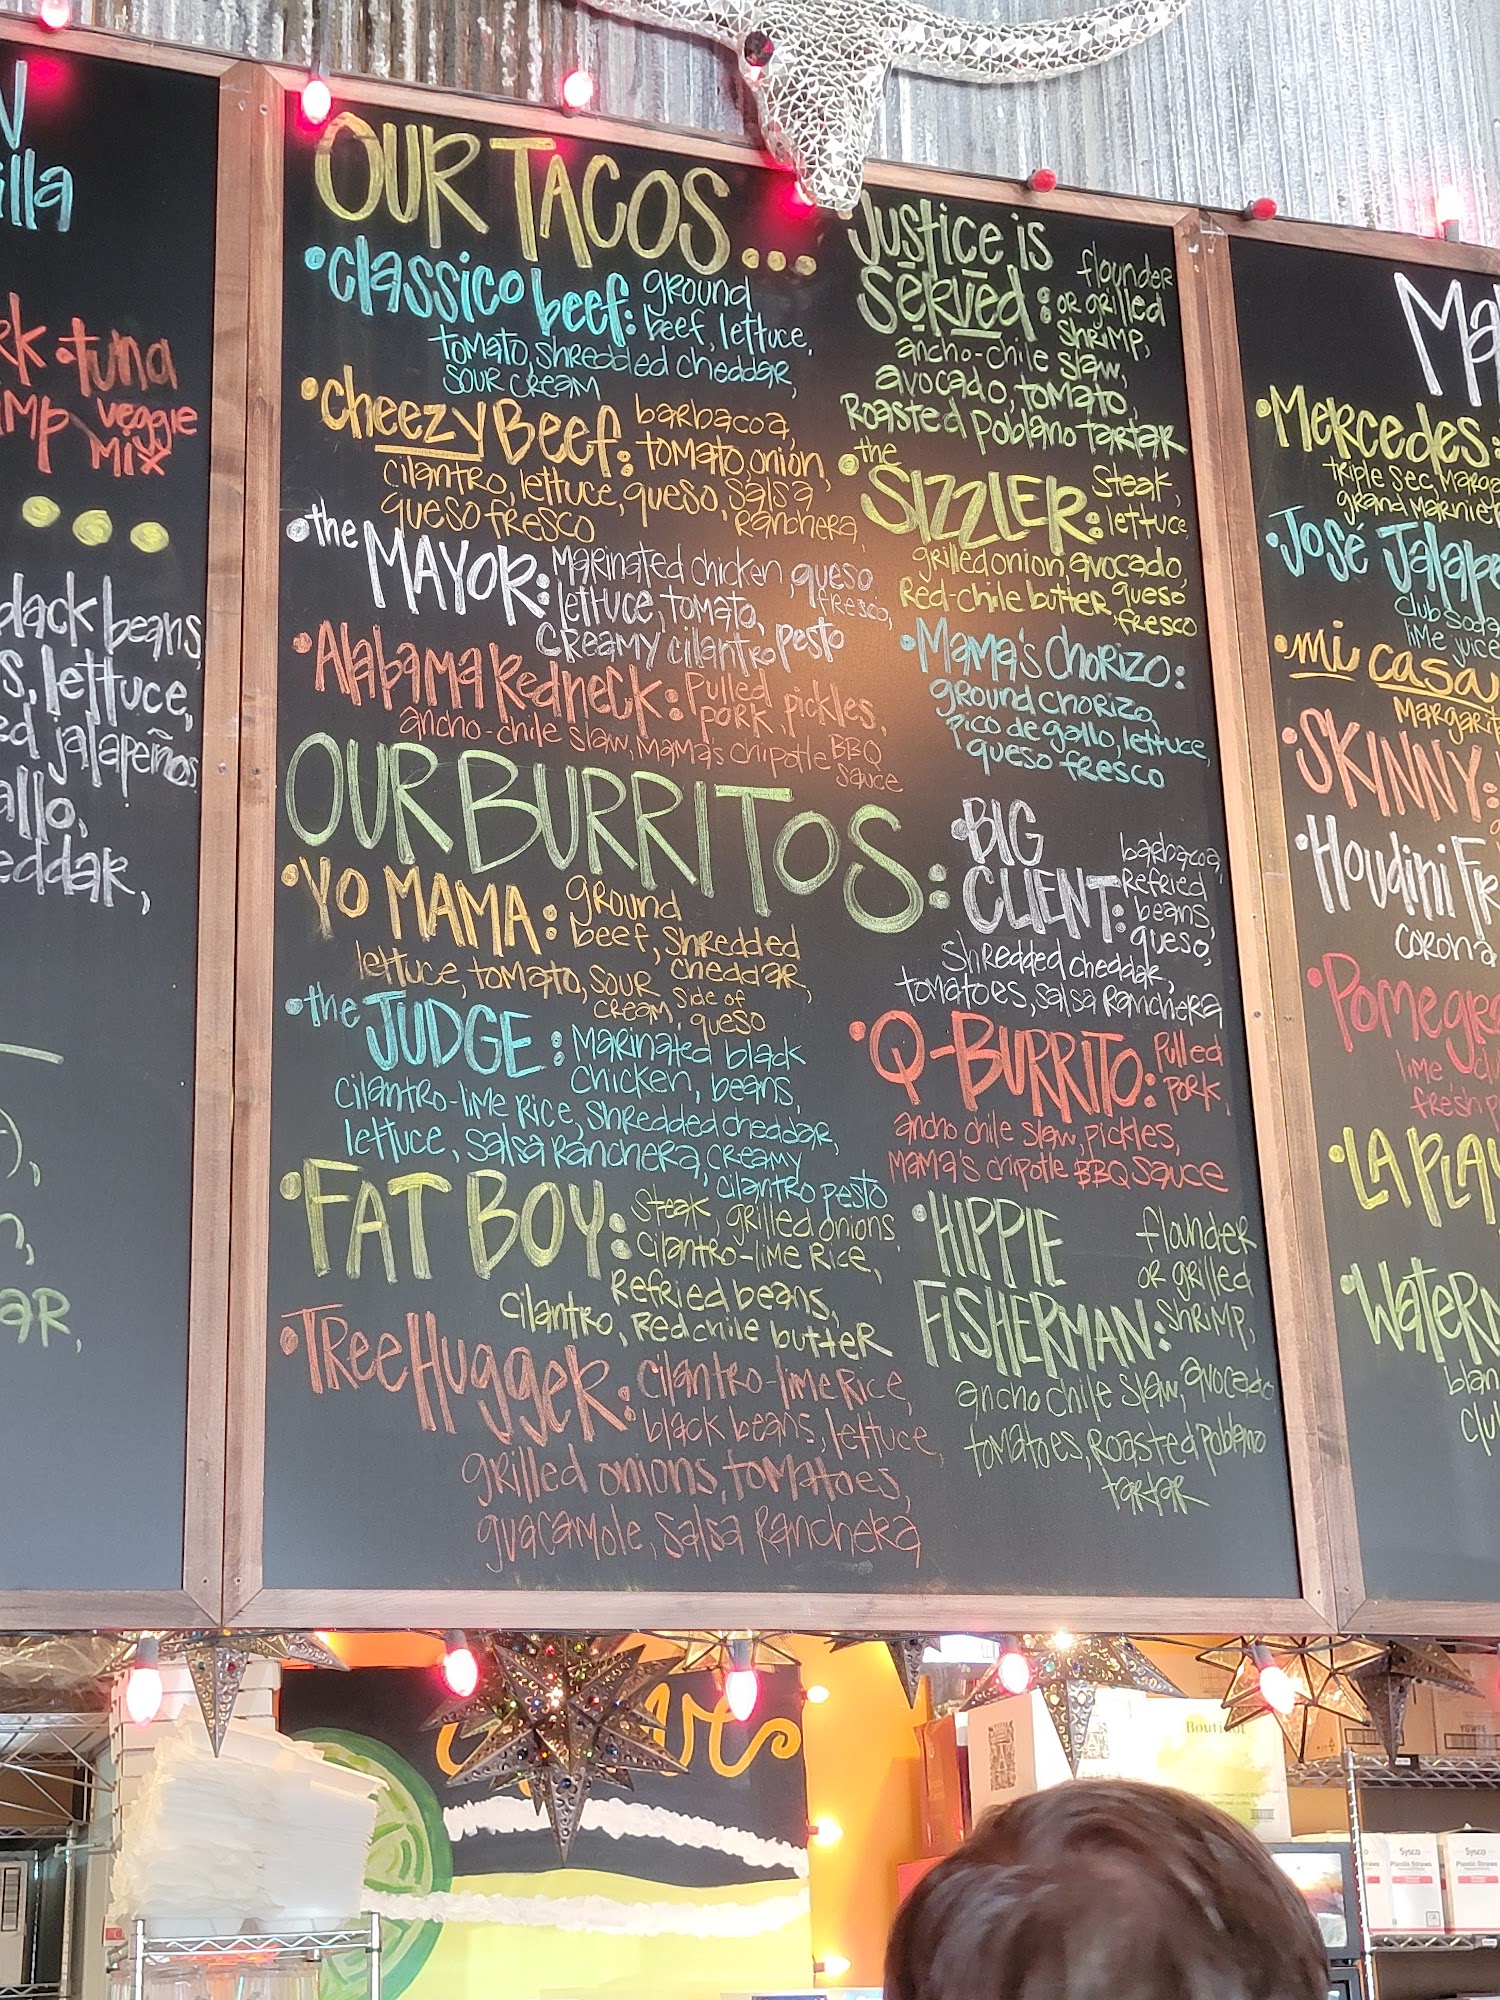 illa
tuna
veggie
MIX
black beans,
lettuce,
jalapeños
OUR TACOS...
• classico beef: ground
beef, lettuce,
tomato, shredded cheddar,
sour cream
• cheezy Beef: barbacoa,
tomato, onion,
cilantro, lettuce, queso, salsa
ranchera,
queso fresco
• the MAYOR: Marinated chicken, queso
fresco,
lettuce, tomato,
creamy cilantro pesto
• Alabama Redneck: pulled
pork, pickles,
ancho-chile slaw, Mama's chipotle BBQ
sauce
Justice is
Served: flounder
or grilled
shrimp,
ancho-chile slaw,
avocado, tomato,
Roasted poblano tartar
• the SIZZLER: steak,
lettuce,
grilled onion, avocado,
Red-chile butter, queso
fresco
• Mama's Chorizo:
ground chorizo,
pico de gallo, lettuce,
queso fresco
OUR BURRITOS:
• YO MAMA: ground
beef, shredded
cheddar,
lettuce, tomato, sour
cream, side of
queso
• the JUDGE: Marinated black
chicken, beans,
cilantro-lime rice, shredded cheddar,
lettuce, salsa Ranchera, creamy
cilantro pesto
• FAT BOY: steak, grilled onions,
cilantro-lime rice,
Refried beans,
cilantro, Red chile butter
• TreeHugger: cilantro-lime rice,
black beans, lettuce,
grilled onions, tomatoes,
guacamole, salsa Ranchera
• BIG
CLIENT: barbacoa,
Refried
beans,
queso,
shredded cheddar,
tomatoes, salsa Ranchera
• Q-BURRITO: pulled
pork,
ancho chile slaw, pickles,
Mama's chipotle BBQ sauce
• HIPPIE
FISHERMAN: flounder
or grilled
shrimp,
ancho chile slaw, avocado
tomatoes, Roasted poblano
tartar
• Mercedes:
triple sec,
grand
• José
club soda
lime juice
• mi casa
• SKINNY:
• Houdini
corona
lime
fresh
• LA
Sysco
Plastic Straws
Sysco
Plastic Straws